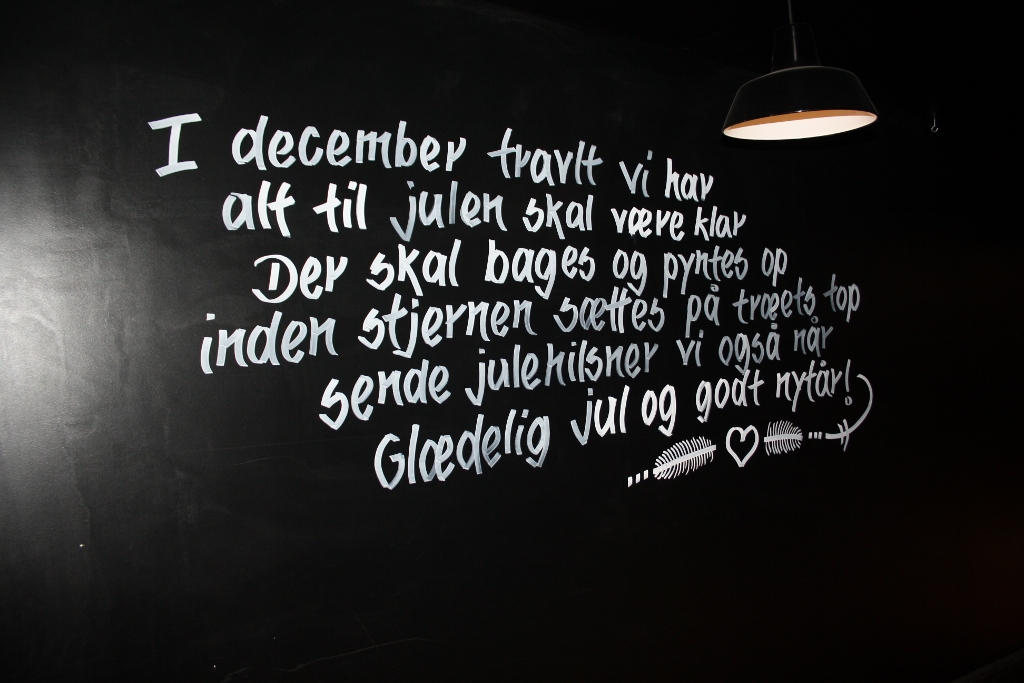 I december travlt vi har
alt til julen skal være klar
Der skal bages og pyntes op
inden stjernen sættes på træets top
sende julehilsner vi også når
Glædelig jul og godt nytår!